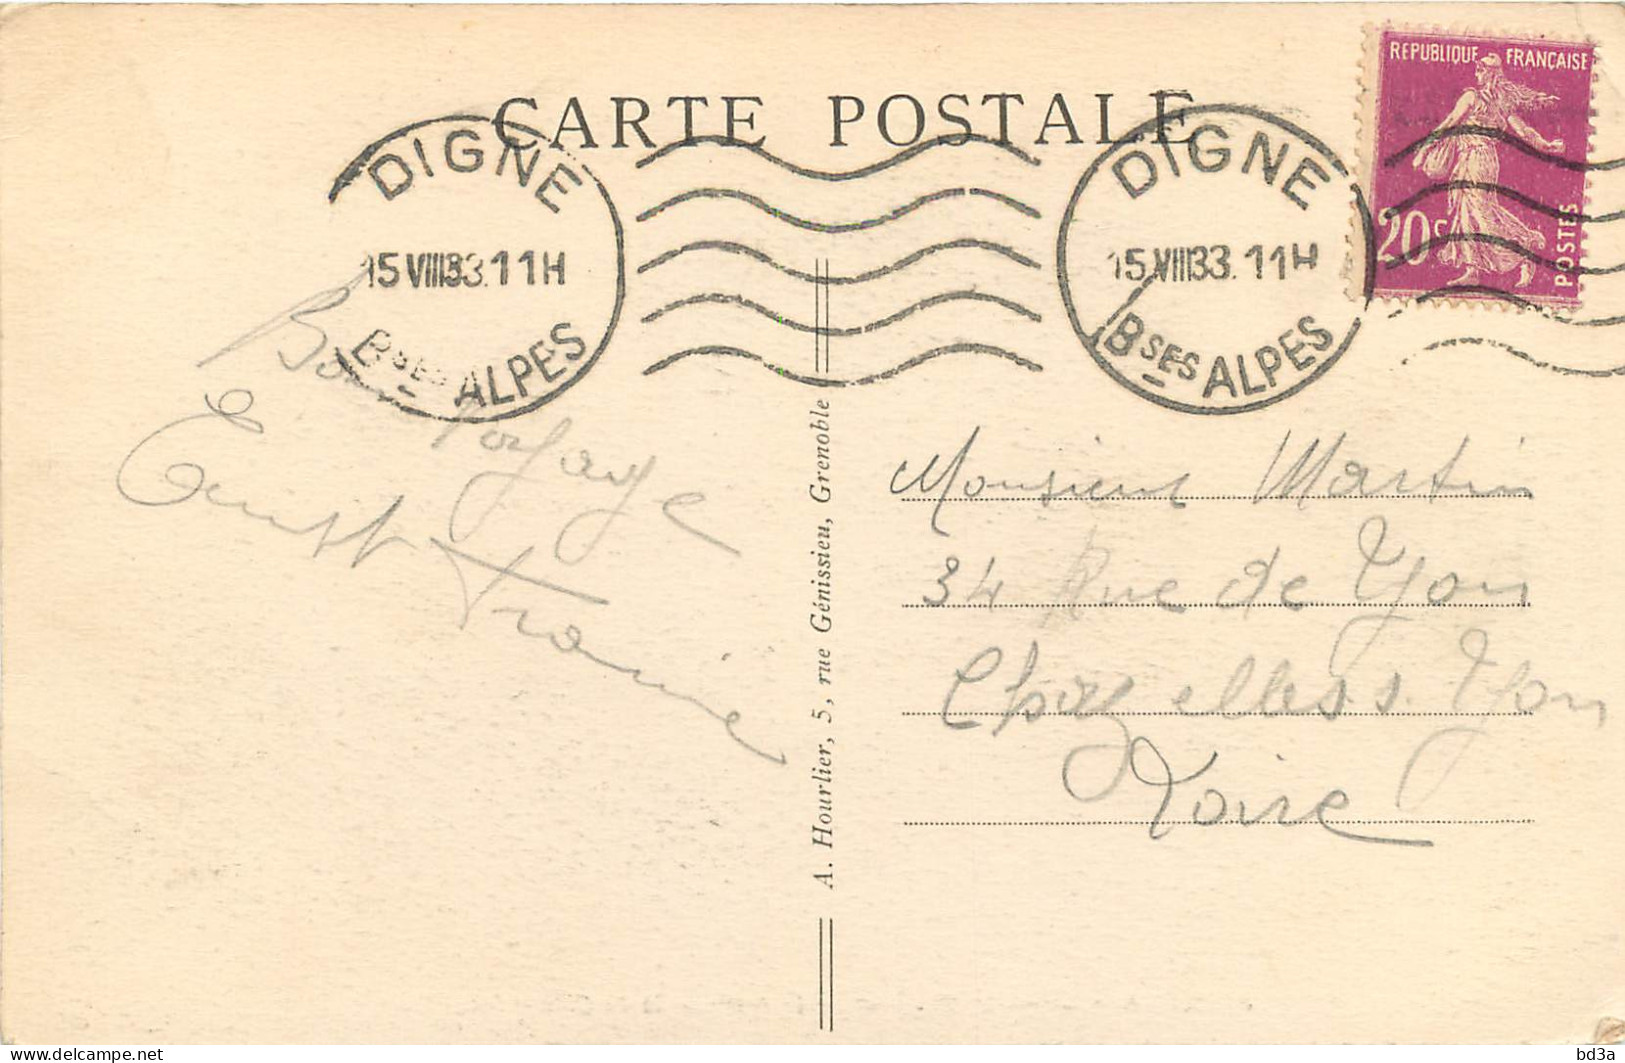 CARTE POSTALE
REPUBLIQUE FRANÇAISE
20c
POSTES
DIGNE
15 VIII 33. 11H
Bses ALPES
DIGNE
15 VIII 33. 11H
Bses ALPES
Bon Voyage
A. Hourlier, 5, rue Génissieu, Grenoble
Monsieur Martin
34 Rue de Lyon
Chazelles s. Lyon
Loire
delcampe.net
bd3a